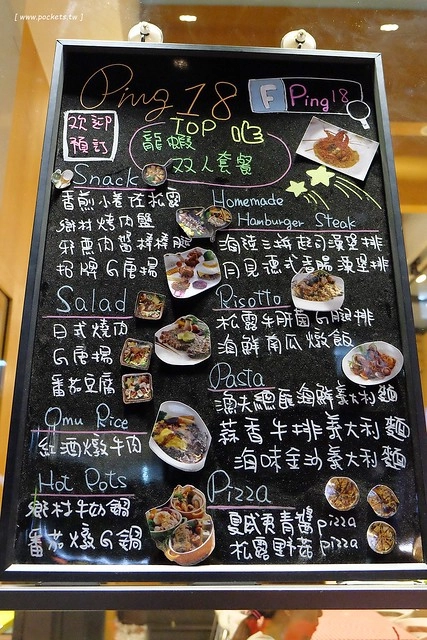 [ www.pockets.tw ]
Ping 18
F Ping18
欢迎
預訂
TOP
龍蝦
双人套餐
Snack
香煎小卷佐松露
鄉村烤肉盤
招牌G唐揚
Homemade
Hamburger Steak
月見德式香腸漢堡排
Salad
日式燒肉
G唐揚
番茄豆腐
Risotto
松露牛肝菌G腿排
海鮮南瓜燉飯
Pasta
漁夫總匯海鮮義大利麵
蒜香牛排義大利麵
海味金沙義大利麵
Omu Rice
紅酒燉牛肉
Hot Pots
鄉村牛奶鍋
番茄燉G鍋
Pizza
夏威夷青醬pizza
松露野菇pizza